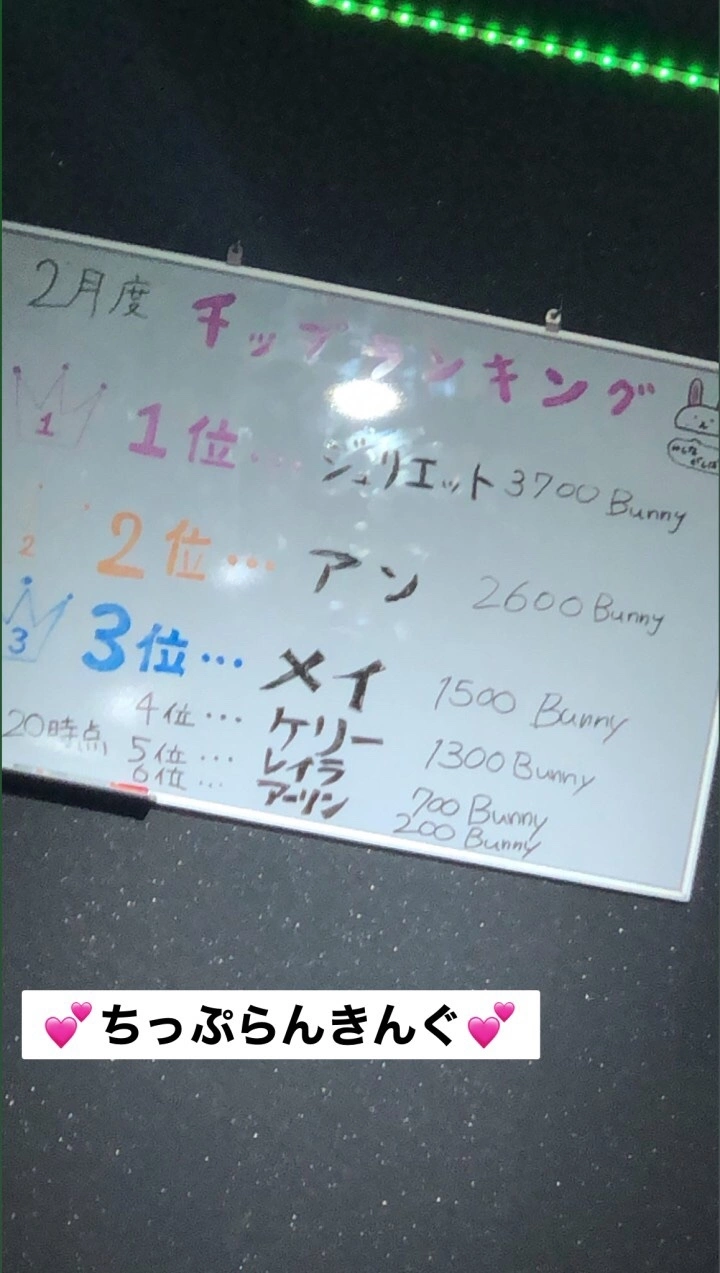 2月度 チップランキング
1
1位… ジュリエット 3700 Bunny
2
2位… アン 2600 Bunny
3
3位… メイ 1500 Bunny
4位… ケリー 1300 Bunny
20時点
5位… レイラ 700 Bunny
6位… アーリン 200 Bunny
💕ちっぷらんきんぐ💕